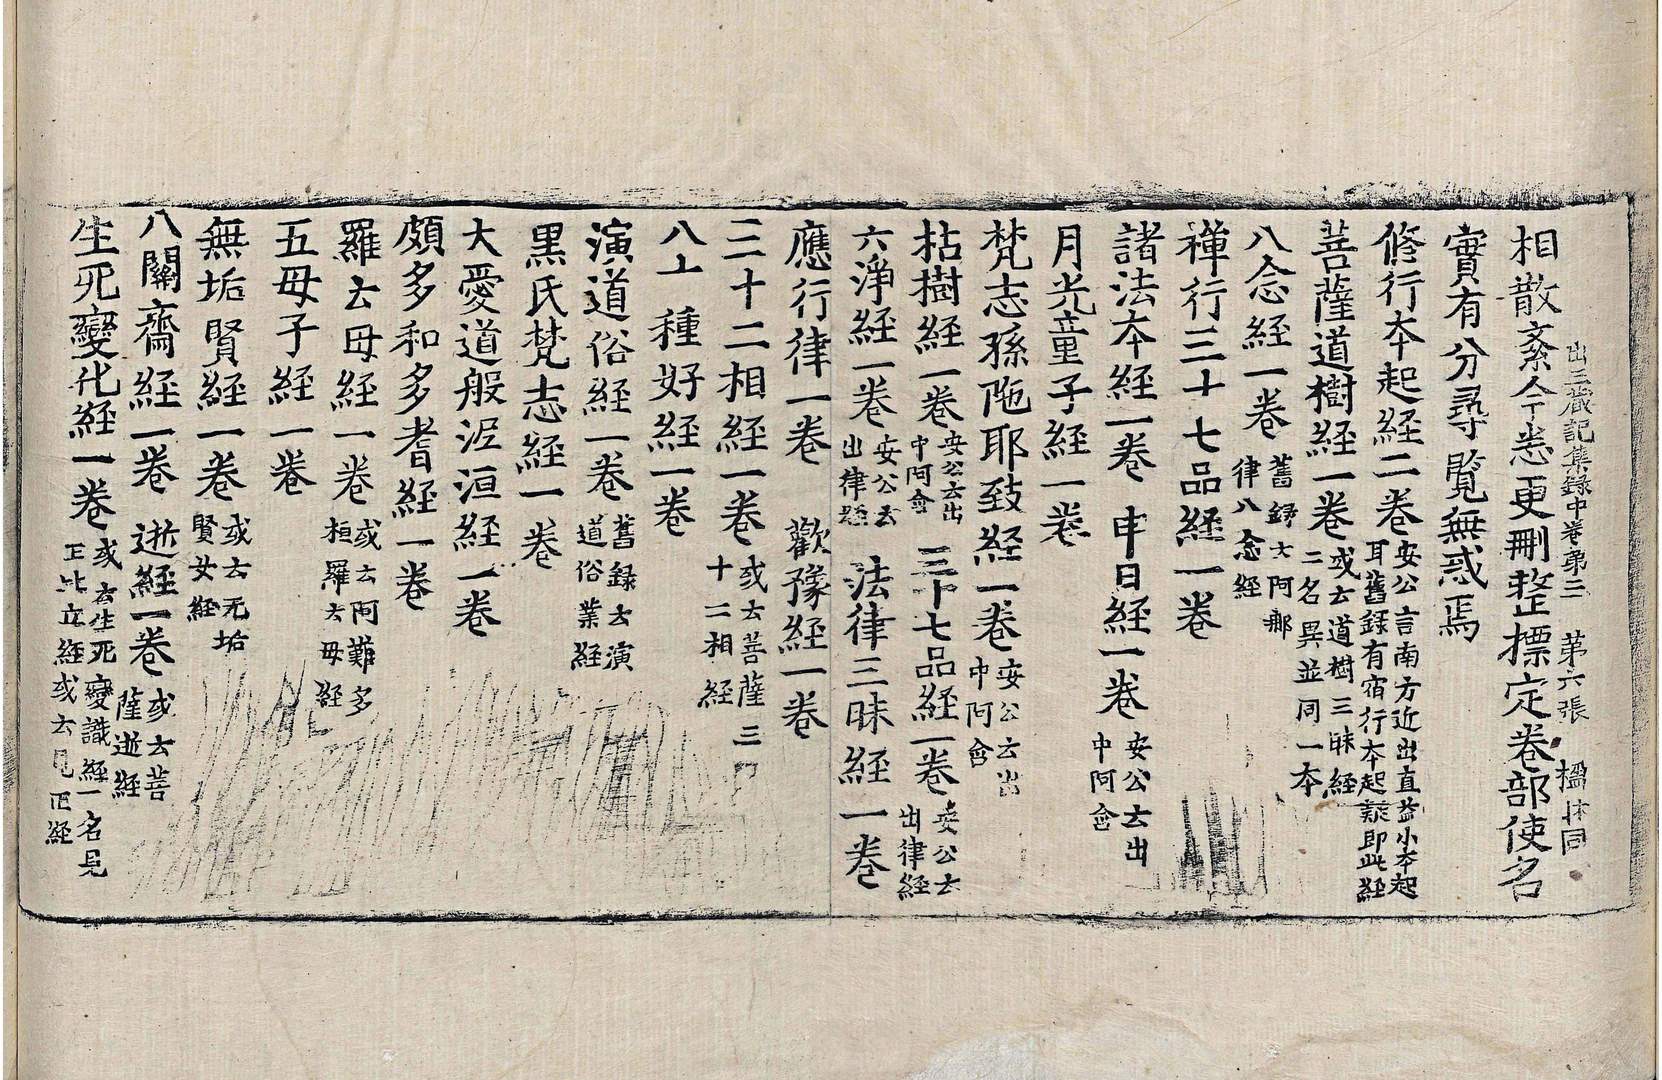 出三藏記集錄中卷苐三 苐六張 楹
相散紊今悉更刪整標定卷部使名
實有分尋覽無惑焉
脩行本起經二卷安公言南方近出直益小本起耳舊錄有宿行本起疑即此經
菩薩道樹經一卷或云道樹三昧經二名異並同一本
八念經一卷舊錄 阿那律八念經
禪行三十七品經一卷
諸法本經一卷 申日經一卷安公云出中阿含
月光童子經一卷
梵志孫陁耶致經一卷安公云出中阿含
枯樹經一卷安公云出中阿含 三十七品經一卷安公云出律經
六淨經一卷安公云出律 法律三昧經一卷
應行律一卷 歡豫經一卷
三十二相經一卷或云菩薩三十二相經
八十種好經一卷
演道俗經一卷舊錄云演道俗業經
黑氏梵志經一卷
大愛道般泥洹經一卷
頗多和多耆經一卷
羅云母經一卷或云阿難多桓羅云母經
五母子經一卷
無垢賢經一卷或云无垢賢女經
八關齋經一卷 逝經一卷或云菩薩逝經
生死變化經一卷或云生死變識經一名見正比丘經或云見正經